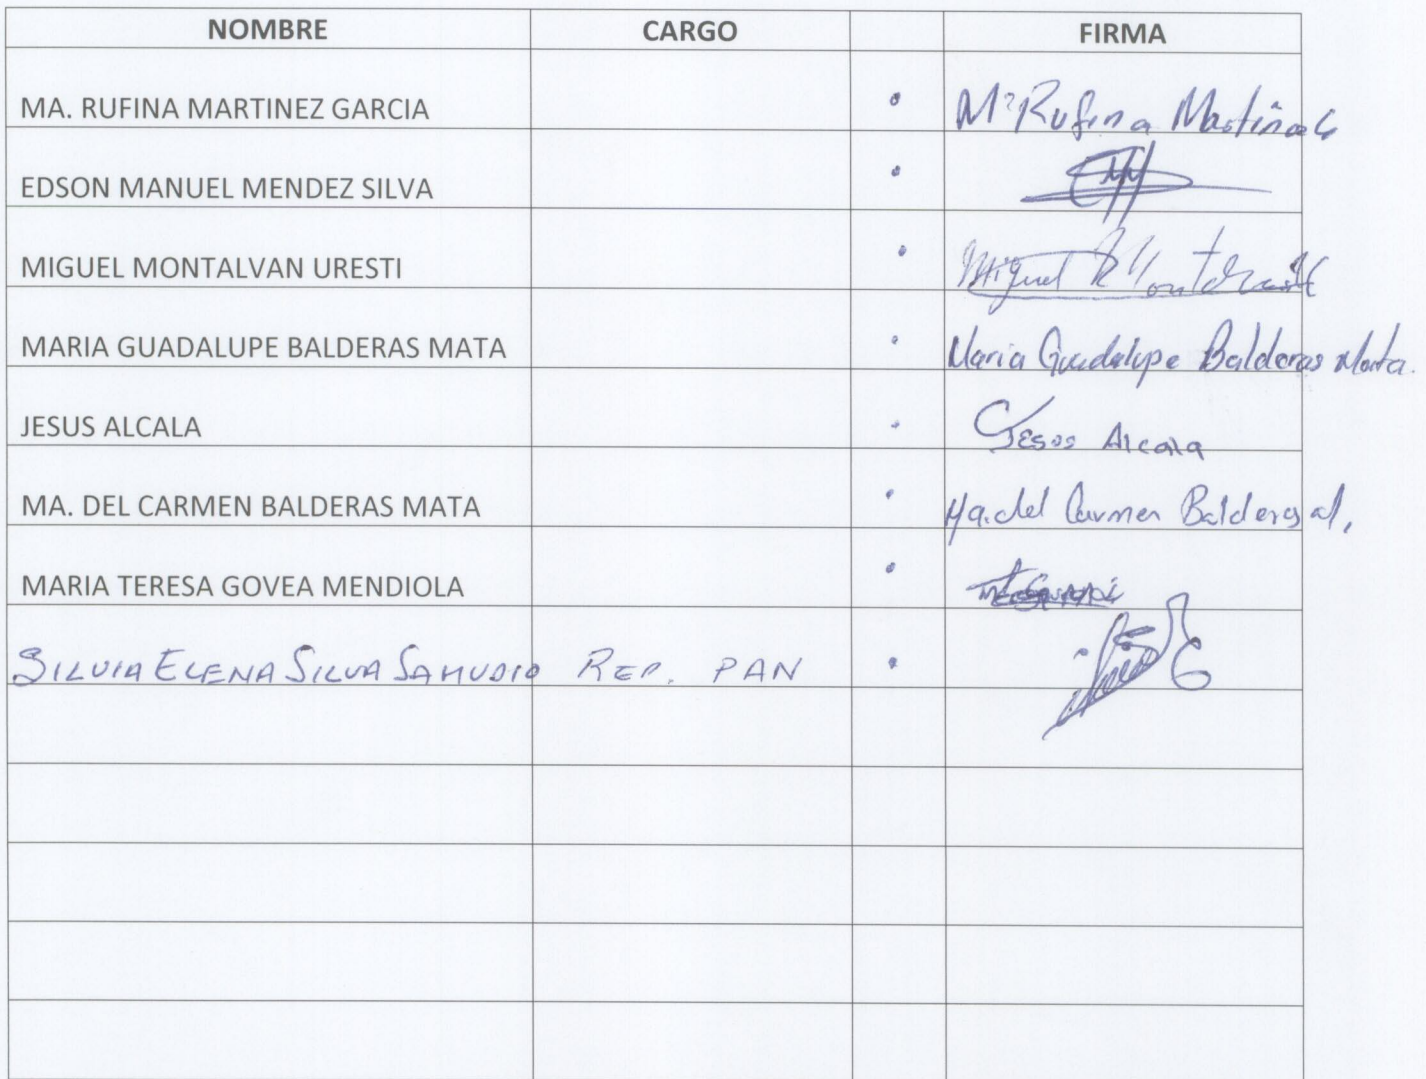 NOMBRE CARGO FIRMA
MA. RUFINA MARTINEZ GARCIA Mª Rufina
EDSON MANUEL MENDEZ SILVA
MIGUEL MONTALVAN URESTI Miguel
MARIA GUADALUPE BALDERAS MATA Maria Guadalupe Balderas Mata.
JESUS ALCALA Jesus Alcala
MA. DEL CARMEN BALDERAS MATA Ma. del Carmen Balderas
MARIA TERESA GOVEA MENDIOLA
SILVIA ELENA SILVA SAMUDIO REP. PAN